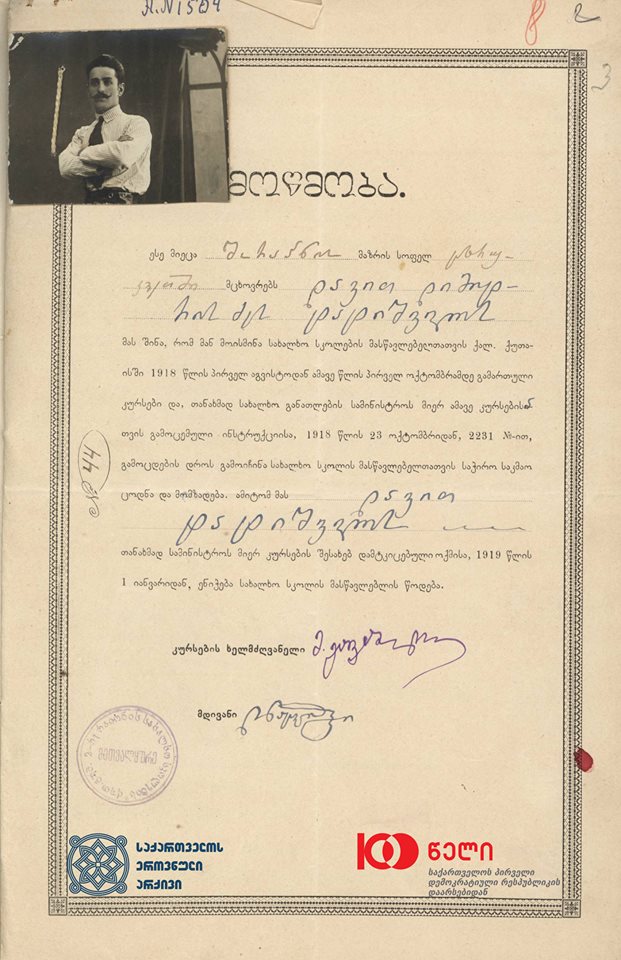 8
3
მოწმობა.
ესე მიეცა შორაპნის მაზრის სოფელ
მცხოვრებს დავით
ძეს დადიშვილს
მას შინა, რომ მან მოისმინა სახალხო სკოლების მასწავლებელთათვის ქალ. ქუთა-
ისში 1918 წლის პირველ აგვისტოდან ამავე წლის პირველ ოქტომბრამდე გამართული
კურსები და, თანახმად სახალხო განათლების სამინისტროს მიერ ამავე კურსებისა
თვის გამოცემული ინსტრუქციისა, 1918 წლის 23 ოქტომბრიდან, 2231 №-ით,
გამოცდების დროს გამოიჩინა სახალხო სკოლის მასწავლებელთათვის საჭირო საკმაო
ცოდნა და მომზადება. ამიტომ მას დავით
დადიშვილს
თანახმად სამინისტროს მიერ კურსების შესახებ დამტკიცებული ოქმისა, 1919 წლის
1 იანვარიდან, ენიჭება სახალხო სკოლის მასწავლებლის წოდება.
№ 44
კურსების ხელმძღვანელი
მდივანი
საქართველოს
ეროვნული
არქივი
100 წელი
საქართველოს პირველი
დემოკრატიული რესპუბლიკის
დაარსებიდან